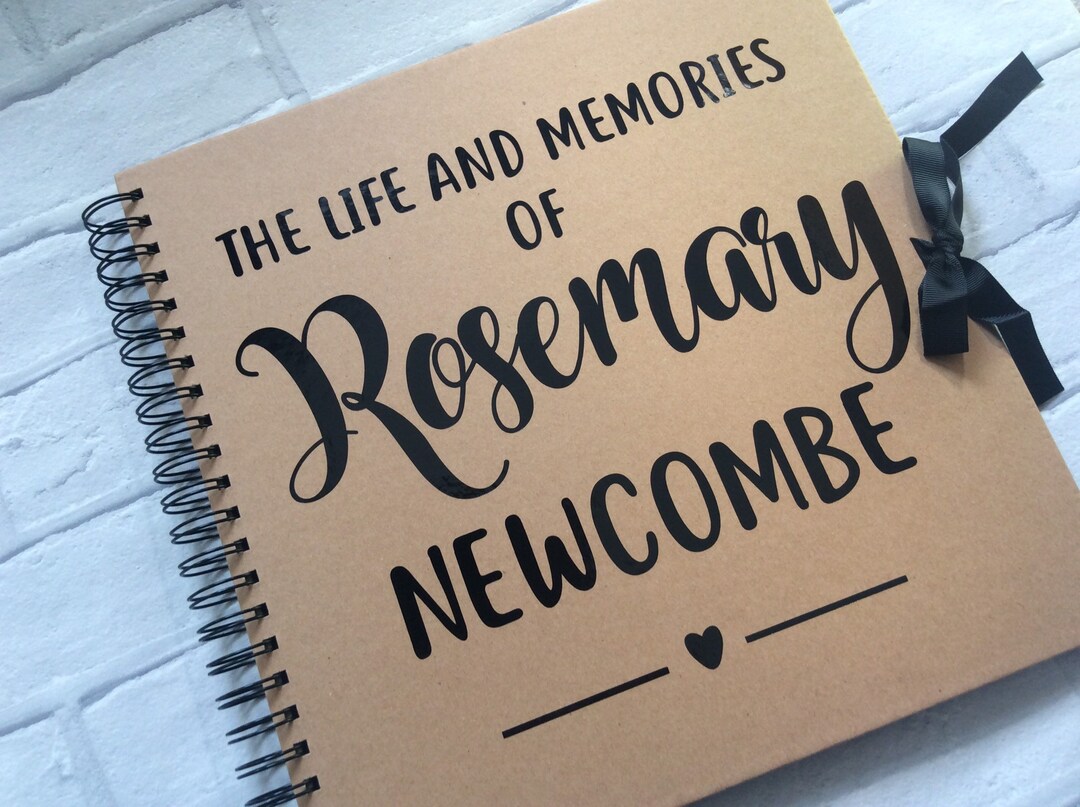 THE LIFE AND MEMORIES
OF
Rosemary
NEWCOMBE